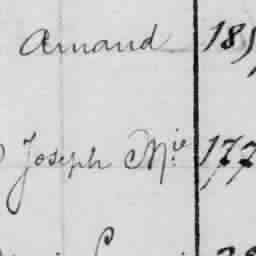 Amand 185
Joseph M.ie 177